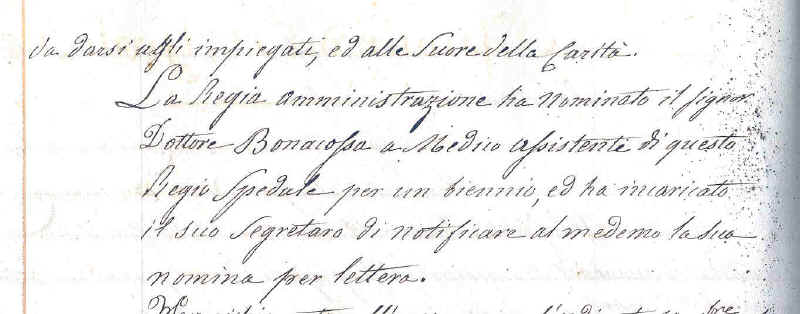 da darsi agli impiegati, ed alle Suore della Carità.
La Regia amministrazione ha nominato il signor
Dottore Bonacossa a Medico assistente di questo
Regio Spedale per un biennio, ed ha incaricato
il suo Segretaro di notificare al medemo la sua
nomina per lettera.